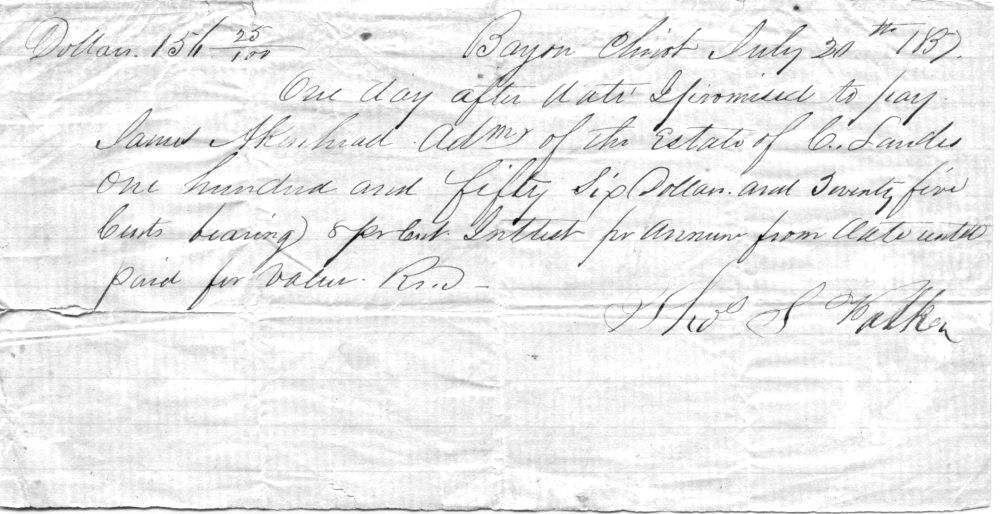 Dollars. 156 25/100 Bayou Chicot July 20th 185
One day after date I promised to pay
James Akenhead Admr of the Estate of C. Landis
One hundred and fifty Six Dollars and Twenty five
Cents bearing 8 pr Cent Interest pr Annum from date until
paid for Value Rcd
Thos S Walker